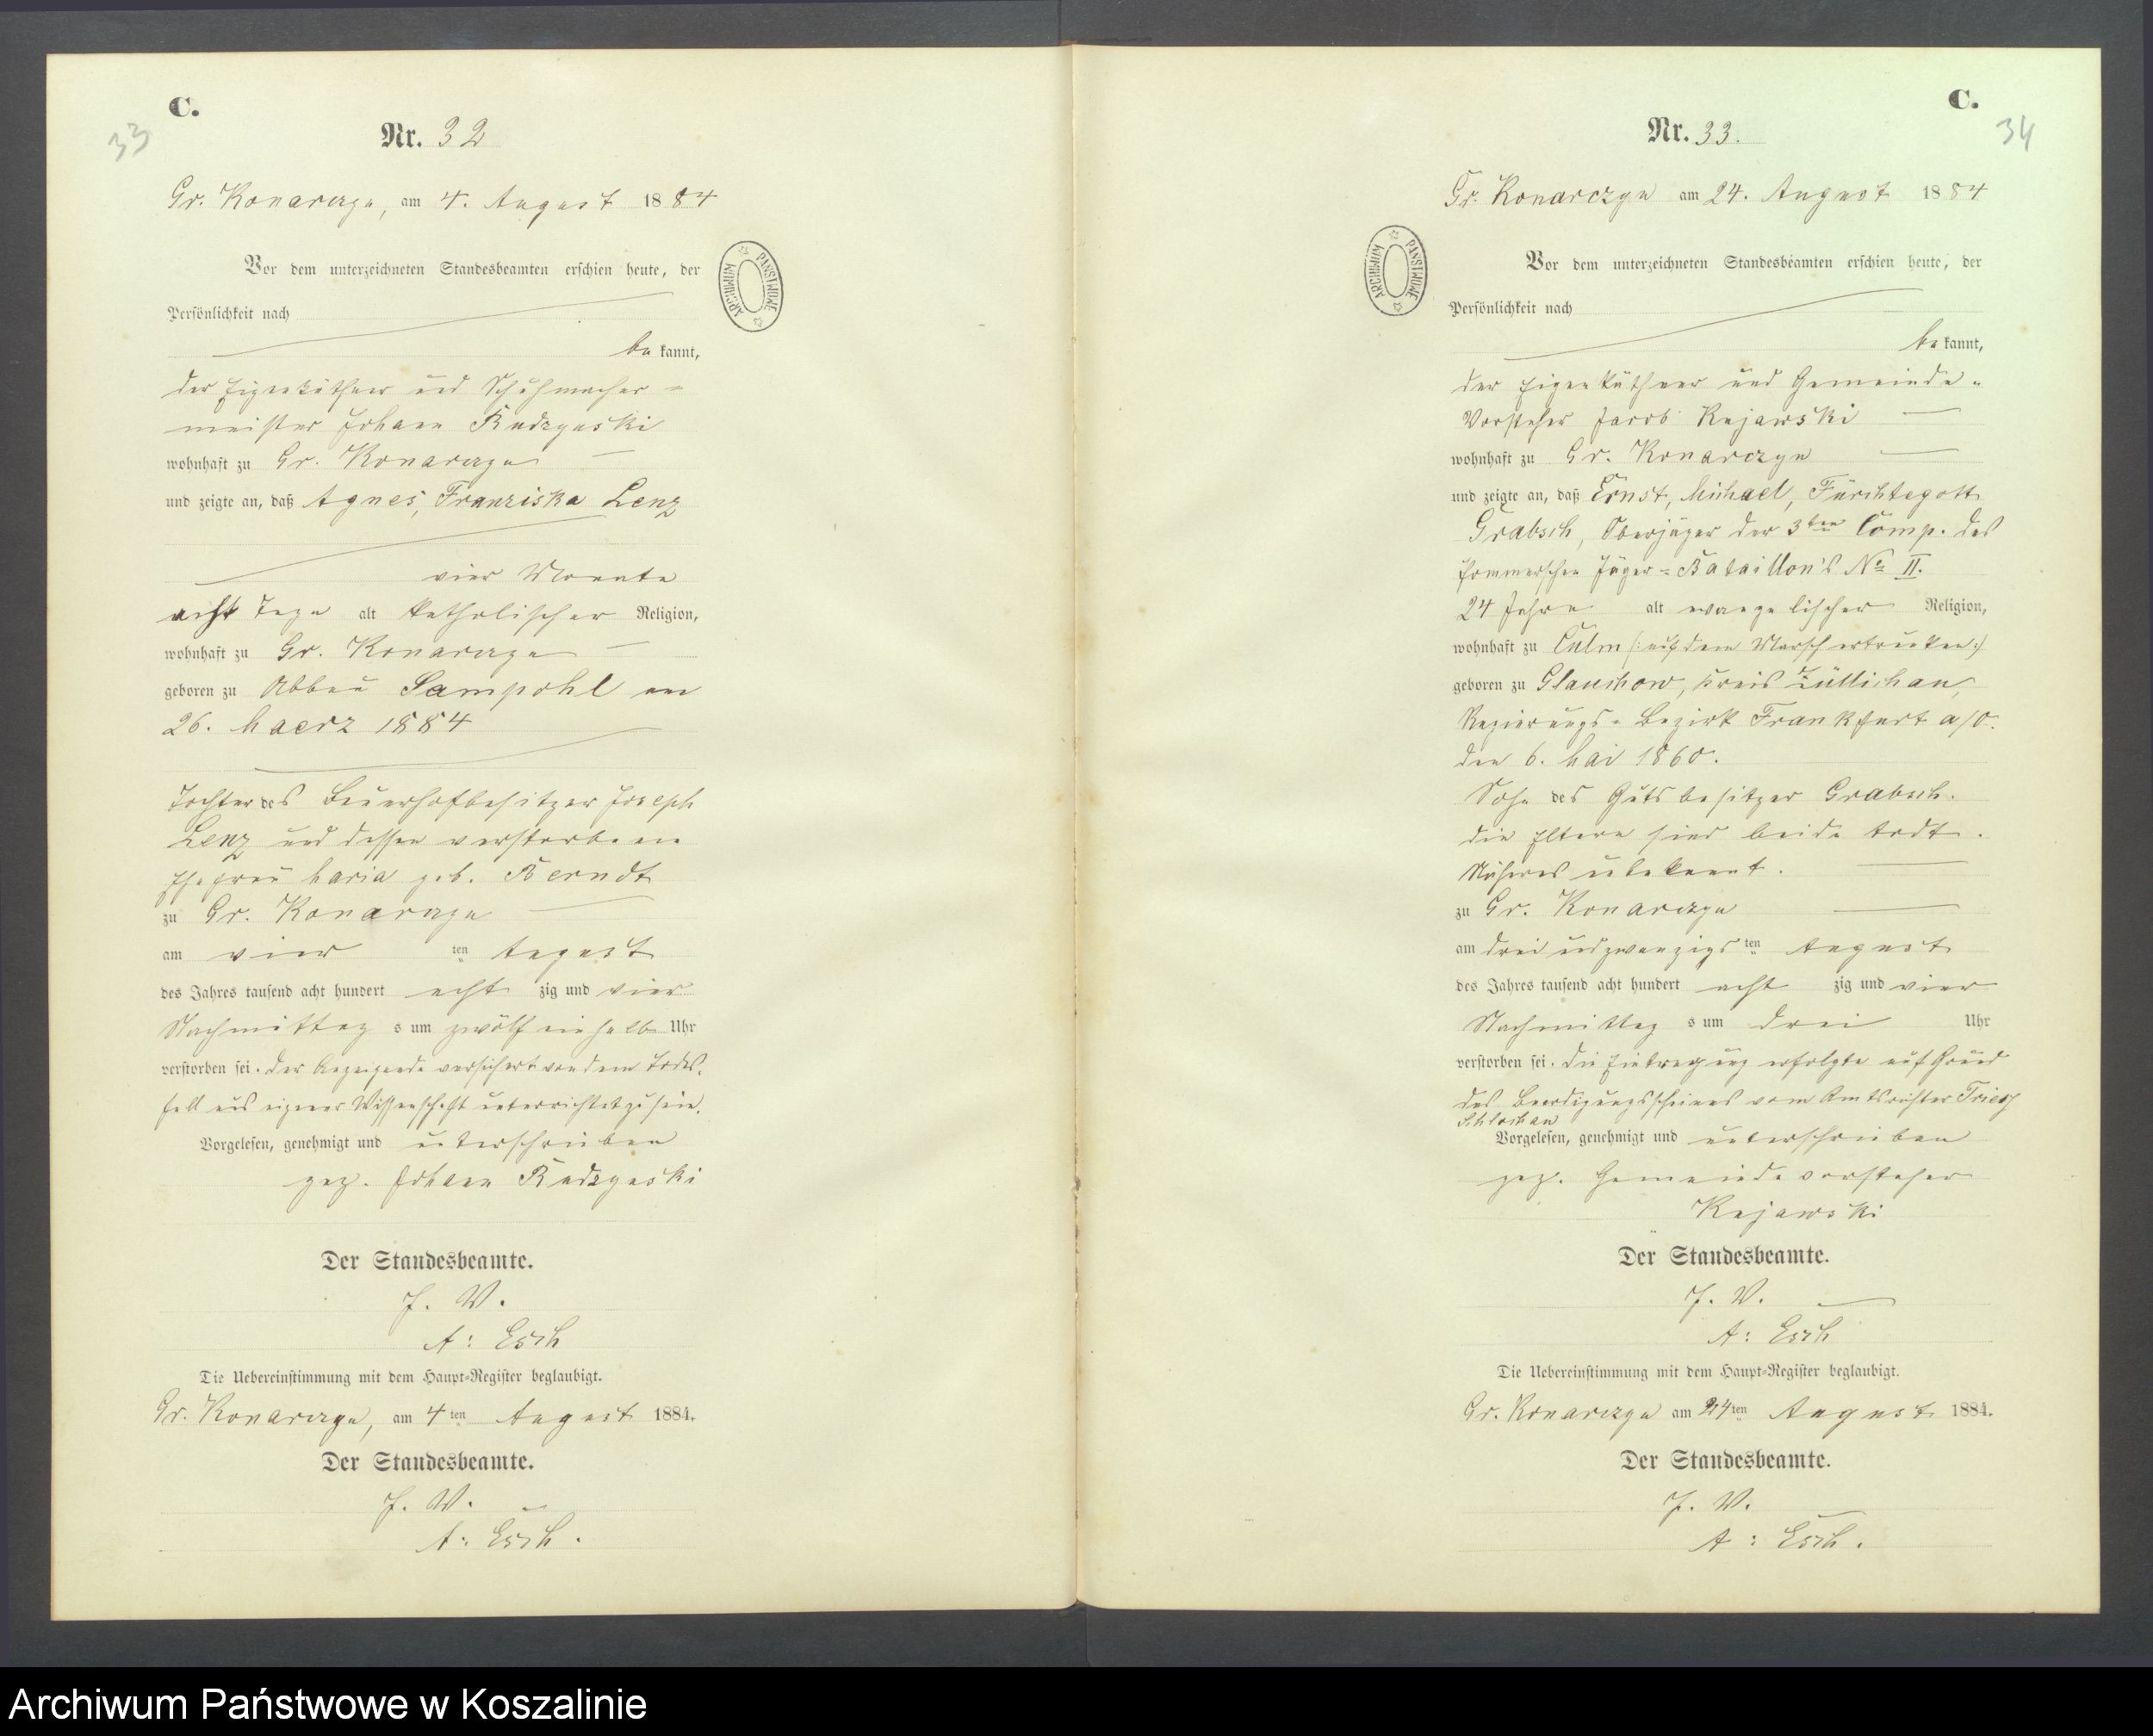 C.
33
Nr. 32
Gr. Konarczyn, am 4. August 1884
Vor dem unterzeichneten Standesbeamten erschien heute, der
Persönlichkeit nach
be kannt,
der Eigenkäthner und Schuhmacher-
meister Johann Rudzynski
wohnhaft zu Gr. Konarczyn
und zeigte an, daß Agnes, Franziska Lenz
vier Monate
acht Tage alt katholischer Religion,
wohnhaft zu Gr. Konarczyn
geboren zu Abbau Sampohl am
26. Maerz 1884
Tochter des Bauerhofbesitzer Joseph
Lenz und dessen verstorbenen
Ehefrau Maria geb. Berndt
zu Gr. Konarczyn
am vier ten August
des Jahres tausend acht hundert acht zig und vier
Nachmittag s um zwölf ein halb Uhr
verstorben sei. Der Anzeigende versichert von dem Todes-
fall aus eigener Wissenschaft unterrichtet zu sein.
Vorgelesen, genehmigt und unterschrieben
gez. Johann Rudzynski
Der Standesbeamte.
J. V.
A: Esch
Die Uebereinstimmung mit dem Haupt-Register beglaubigt.
Gr. Konarczyn, am 4ten August 1884.
Der Standesbeamte.
J. V.
A: Esch.
ARCHIWUM PAŃSTWOWE
C.
34
Nr. 33.
Gr. Konarczyn am 24. August 1884
Vor dem unterzeichneten Standesbeamten erschien heute, der
Persönlichkeit nach
be kannt,
der Eigenkäthner und Gemeinde-
Vorsteher Jacob Kujawski
wohnhaft zu Gr. Konarczyn
und zeigte an, daß Ernst, Michael, Fürchtegott
Grabsch, Oberjäger der 3ten Comp. des
Pommerschen Jäger-Bataillon's No II.
24 Jahre alt evangelischer Religion,
wohnhaft zu Culm (: auf dem Marsch ertrunken :)
geboren zu Glauchow, Kreis Züllichau,
Regierungs-Bezirk Frankfurt a/O.
den 6. Mai 1860.
Sohn des Gutsbesitzer Grabsch.
die Eltern sind beide todt.
Näheres unbekannt.
zu Gr. Konarczyn
am drei und zwanzigs ten August
des Jahres tausend acht hundert acht zig und vier
Nachmittag s um drei Uhr
verstorben sei. Die Eintragung erfolgte auf Grund
des Beerdigungsscheines vom Amtsrichter
Schlochau
Vorgelesen, genehmigt und unterschrieben
gez. Gemeindevorsteher
Kujawski
Der Standesbeamte.
J. V.
A: Esch
Die Uebereinstimmung mit dem Haupt-Register beglaubigt.
Gr. Konarczyn am 24ten August 1884.
Der Standesbeamte.
J. V.
A: Esch.
ARCHIWUM PAŃSTWOWE
Archiwum Państwowe w Koszalinie